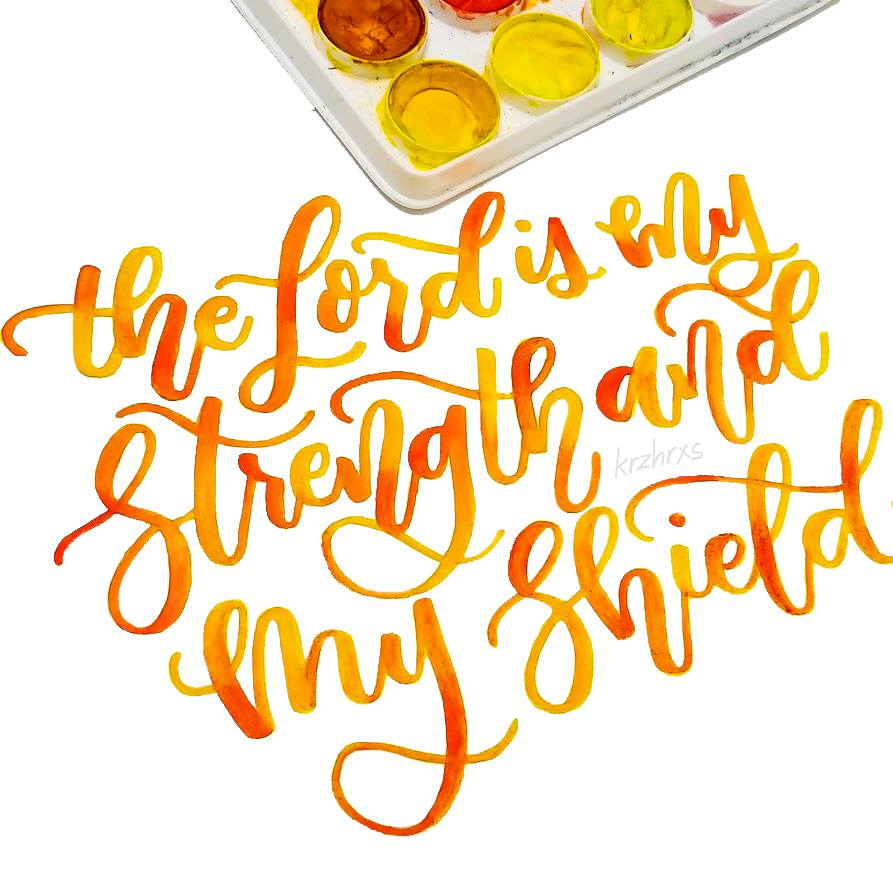 the Lord is my
strength and
my shield
krzhrxs